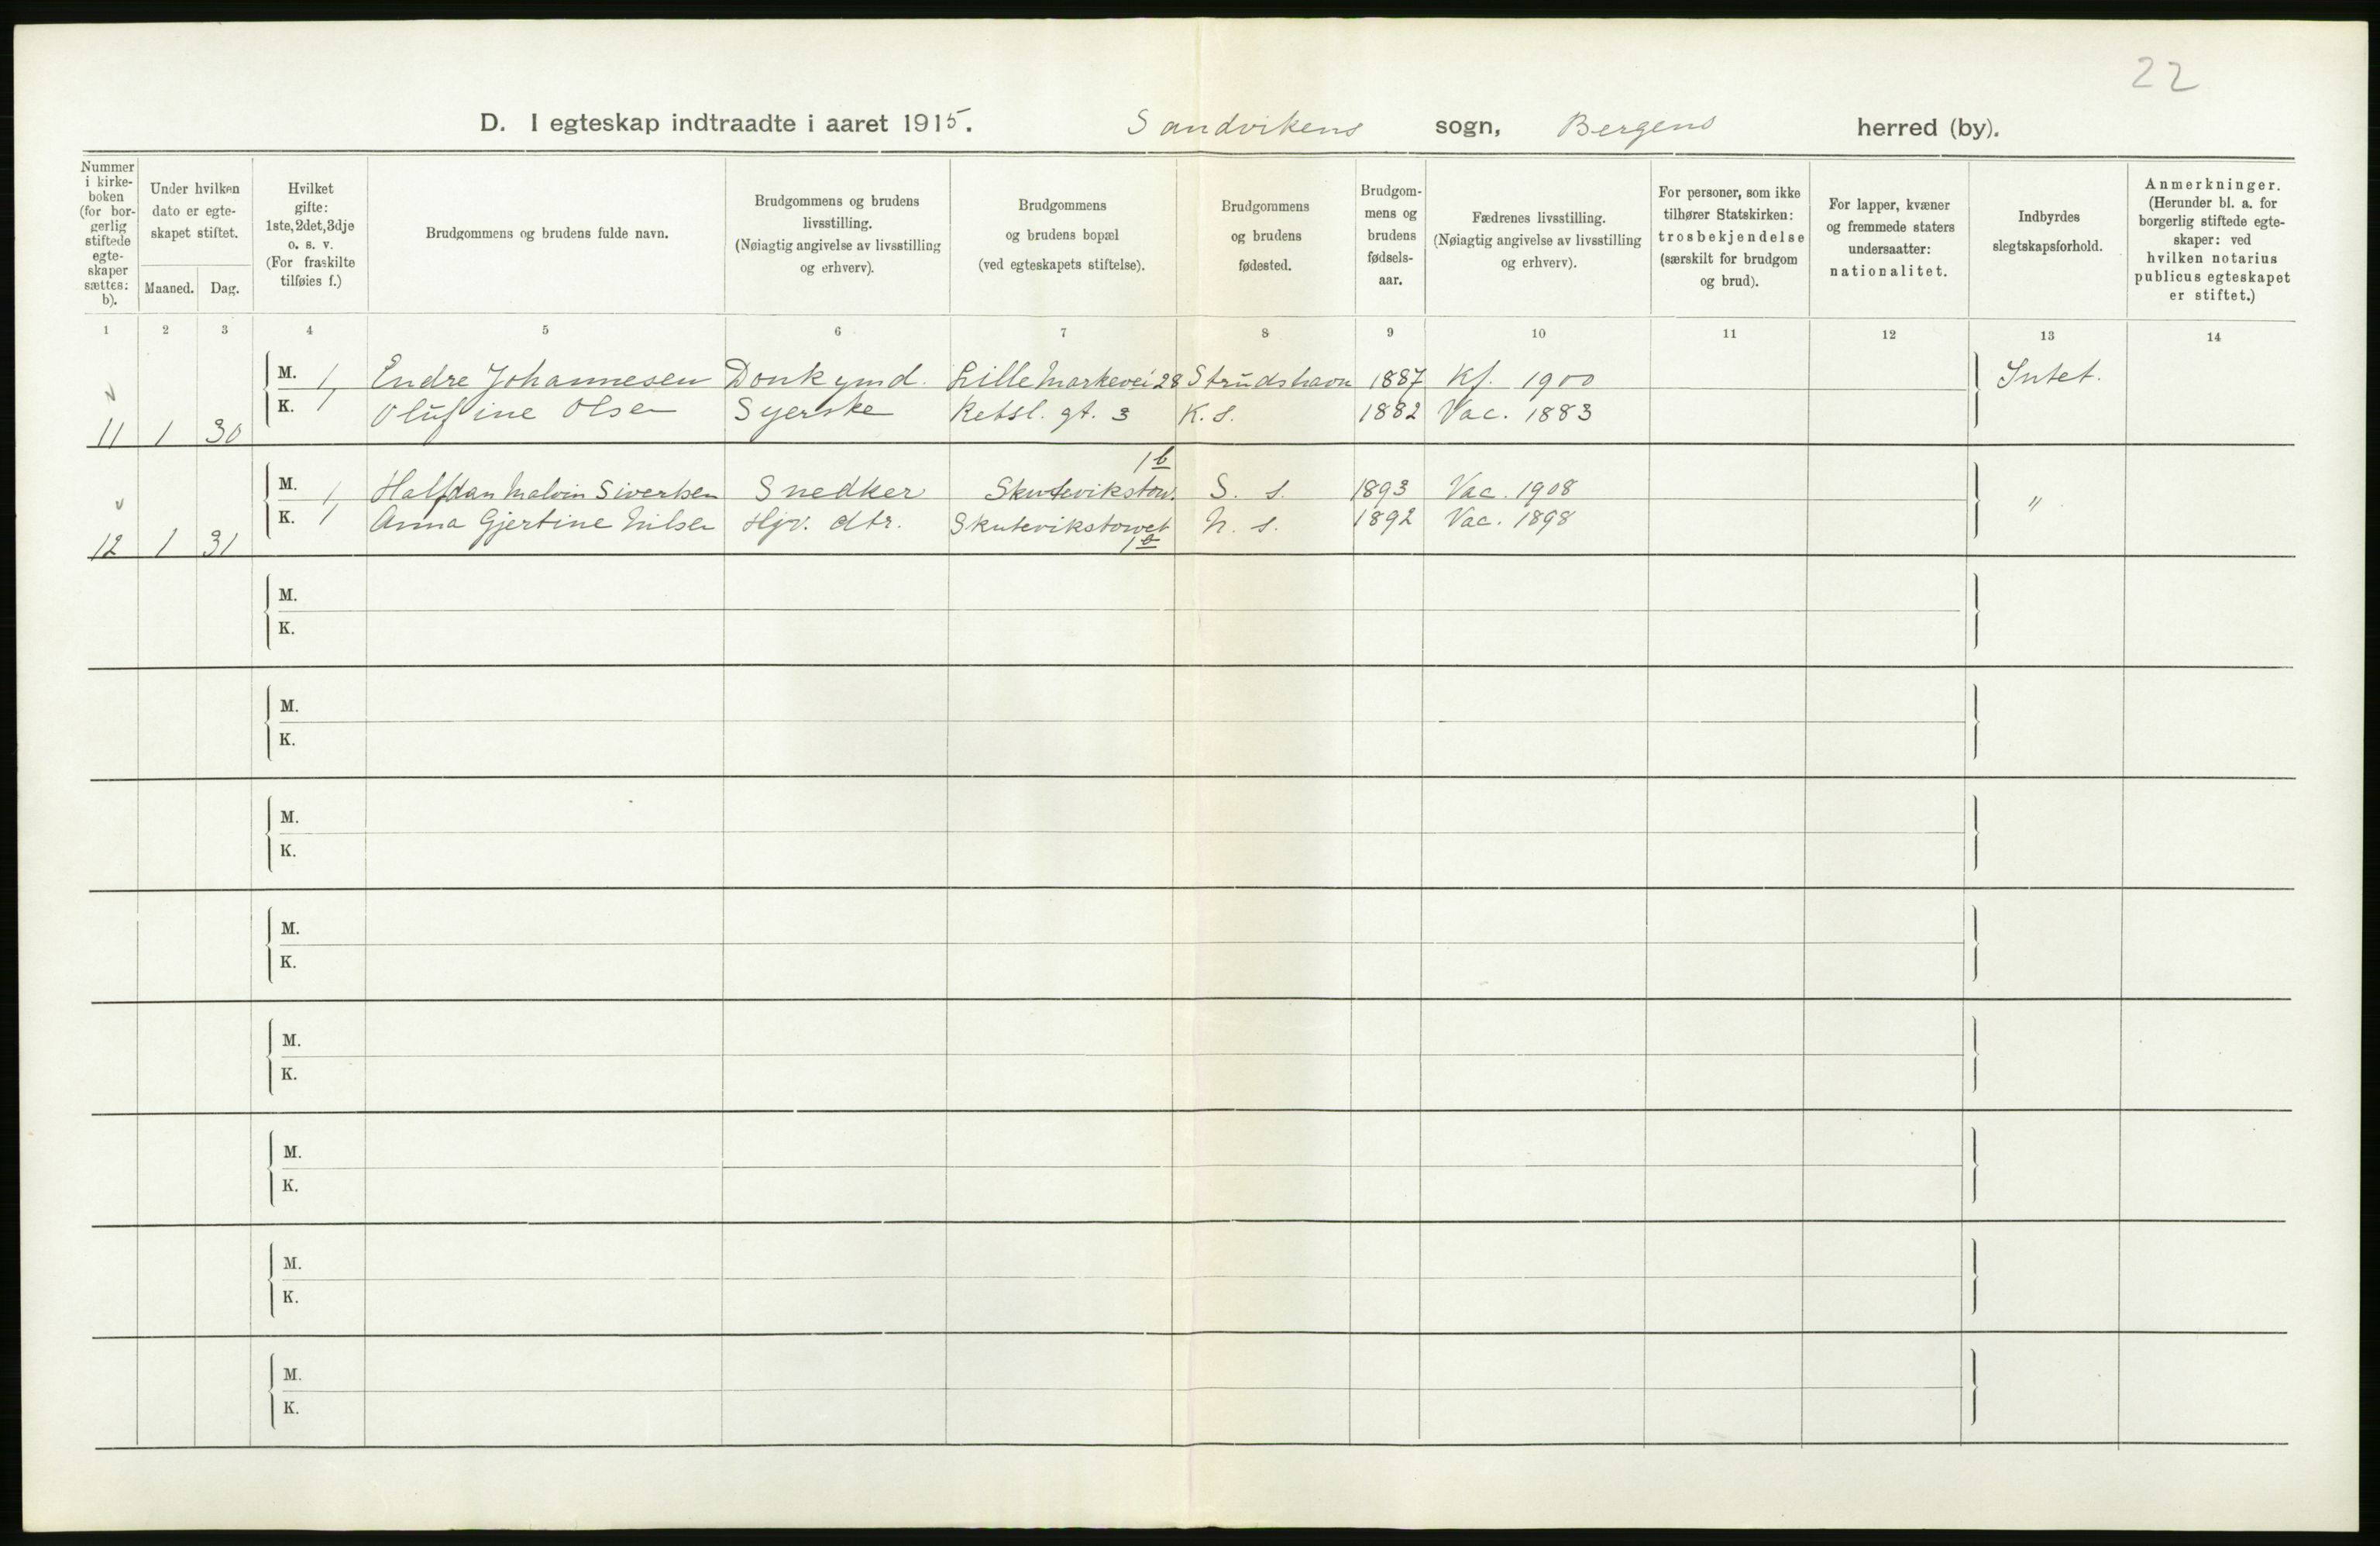 22
D. I egteskap indtraadte i aaret 1915. Sandvikens sogn, Bergens herred (by).
Nummer i kirke- boken (for bor- gerlig stiftede egte- skaper sættes: b).
Under hvilken dato er egte- skapet stiftet.
Maaned. Dag.
Hvilket gifte: 1ste, 2det, 3dje o. s. v. (For fraskilte tilføies f.)
Brudgommens og brudens fulde navn.
Brudgommens og brudens livsstilling. (Nøiagtig angivelse av livsstilling og erhverv).
Brudgommens og brudens bopæl (ved egteskapets stiftelse).
Brudgommens og brudens fødested.
Brudgom- mens og brudens fødsels- aar.
Fædrenes livsstilling. (Nøiagtig angivelse av livsstilling og erhverv).
For personer, som ikke tilhører Statskirken: trosbekjendelse (særskilt for brudgom og brud).
For lapper, kvæner og fremmede staters undersaatter: nationalitet.
Indbyrdes slegtskapsforhold.
Anmerkninger. (Herunder bl. a. for borgerlig stiftede egte- skaper: ved hvilken notarius publicus egteskapet er stiftet.)
1 2 3 4 5 6 7 8 9 10 11 12 13 14
M. 1, Endre Johannesen Donkymd. Lille Markevei 28 Strudshavn 1887 Kf. 1900 Intet.
K. 1 Olufine Olsen Syerske Rebsl. gt. 3 K. s. 1882 Vac. 1883
11 1 30
1 b
M. 1, Halfdan Malvin Sivertsen Snedker Skutevikstorv. S. s. 1893 Vac. 1908 "
K. 1 Anna Gjertine Nilsen Hjv. dtr. Skutevikstorvet N. s. 1892 Vac. 1898
12 1 31 1 b
M.
K.
M.
K.
M.
K.
M.
K.
M.
K.
M.
K.
M.
K.
M.
K.